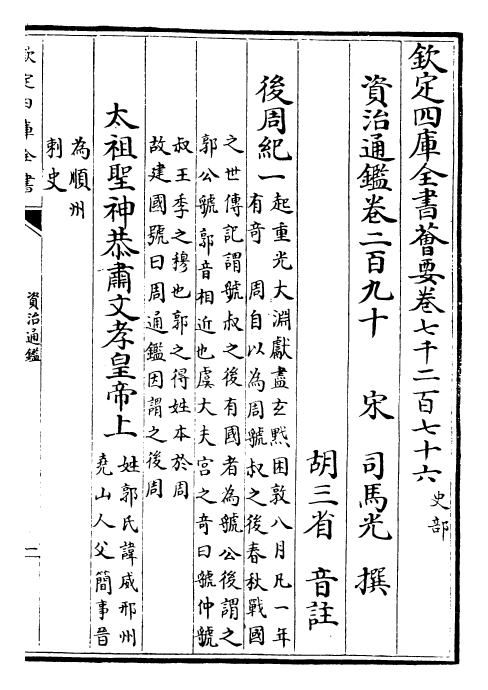 欽定四庫全書薈要卷七千二百七十六 史部
資治通鑑卷二百九十 宋 司馬光 撰
胡三省 音註
後周紀一
起重光大淵獻盡玄黓困敦八月凡一年
有奇 周自以為周虢叔之後春秋戰國
之世傳記謂虢叔之後有國者為虢公後謂之
郭公虢郭音相近也虞大夫宮之奇曰虢仲虢
叔王季之穆也郭之得姓本於周
故建國號曰周通鑑因謂之後周
太祖聖神恭肅文孝皇帝上
姓郭氏諱威邢州
堯山人父簡事晉
為順州
刺史
欽定四庫全書
資治通鑑
二